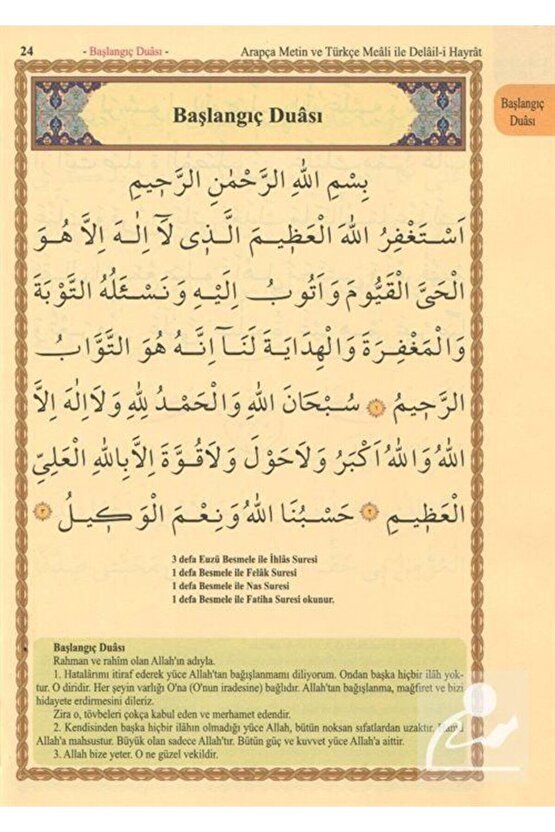 24
- Başlangıç Duâsı -
Arapça Metin ve Türkçe Meâli ile Delâil-i Hayrât
Başlangıç
Duâsı
Başlangıç Duâsı
بِسْمِ اللهِ الرَّحْمٰنِ الرَّحِيمِ
اَسْتَغْفِرُ اللهَ الْعَظِيمَ الَّذِى لَآ اِلٰهَ اِلَّا هُوَ
الْحَىَّ الْقَيُّومَ وَاَتُوبُ اِلَيْهِ وَنَسْئَلُهُ التَّوْبَةَ
وَالْمَغْفِرَةَ وَالْهِدَايَةَ لَنَآ اِنَّهُ هُوَ التَّوَّابُ
الرَّحِيمُ ﴿١﴾ سُبْحَانَ اللهِ وَالْحَمْدُ لِلهِ وَلَا اِلٰهَ اِلَّا
اللهُ وَاللهُ اَكْبَرُ وَلَاحَوْلَ وَلَاقُوَّةَ اِلَّابِاللهِ الْعَلِىِّ
الْعَظِيمِ ﴿٢﴾ حَسْبُنَا اللهُ وَنِعْمَ الْوَكِيلُ ﴿٣﴾
3 defa Euzü Besmele ile İhlâs Suresi
1 defa Besmele ile Felâk Suresi
1 defa Besmele ile Nas Suresi
1 defa Besmele ile Fatiha Suresi okunur.
Başlangıç Duâsı
Rahman ve rahîm olan Allah'ın adıyla.
1. Hatalarımı itiraf ederek yüce Allah'tan bağışlanmamı diliyorum. Ondan başka hiçbir ilâh yok-
tur. O diridir. Her şeyin varlığı O'na (O'nun iradesine) bağlıdır. Allah'tan bağışlanma, mağfiret ve bizi
hidayete erdirmesini dileriz.
Zira o, tövbeleri çokça kabul eden ve merhamet edendir.
2. Kendisinden başka hiçbir ilâhın olmadığı yüce Allah, bütün noksan sıfatlardan uzaktır. Hamd
Allah'a mahsustur. Büyük olan sadece Allah'tır. Bütün güç ve kuvvet yüce Allah'a aittir.
3. Allah bize yeter. O ne güzel vekildir.